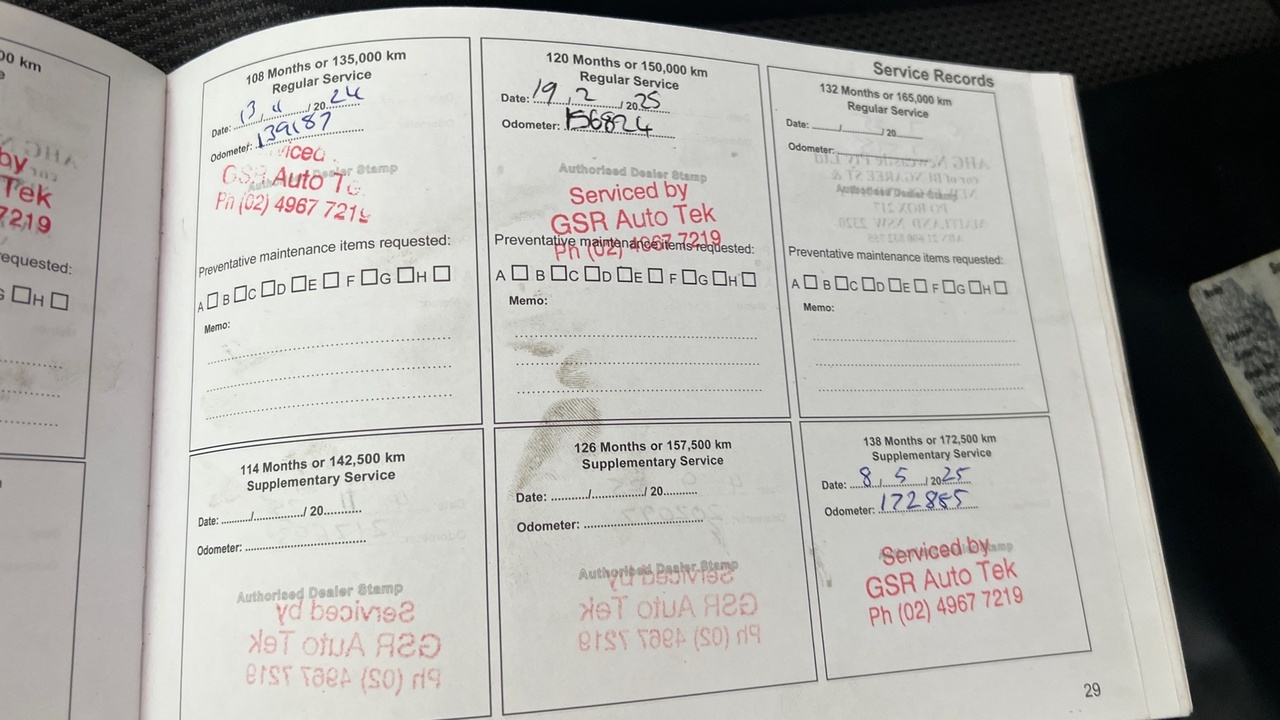 Service Records
00 km
by
Tek
7219
equested:
G □H □
108 Months or 135,000 km
Regular Service
Date: 13/11/2024
Odometer: 139187
viced
GSR Auto Te
Authorised Dealer Stamp
Ph (02) 4967 7219
Preventative maintenance items requested:
A □ B □C □D □E □ F □G □H □
Memo:
120 Months or 150,000 km
Regular Service
Date: 19/2/2025
Odometer: 156824
Authorised Dealer Stamp
Serviced by
GSR Auto Tek
Ph (02) 4967 7219
Preventative maintenance items requested:
A □ B □C □D □E □ F □G □H □
Memo:
132 Months or 165,000 km
Regular Service
Date: ____/____/ 20____
Odometer:
Authorised Dealer Stamp
Preventative maintenance items requested:
A □ B □C □D □E □ F □G □H □
Memo:
114 Months or 142,500 km
Supplementary Service
Date: ........../................/ 20...........
Odometer:
Authorised Dealer Stamp
Serviced by
GSR Auto Tek
Ph (02) 4967 7219
126 Months or 157,500 km
Supplementary Service
Date: ........../................/ 20..........
Odometer:
Authorised Dealer Stamp
Serviced by
GSR Auto Tek
Ph (02) 4967 7219
138 Months or 172,500 km
Supplementary Service
Date: 8/5/2025
Odometer: 172885
Authorised Dealer Stamp
Serviced by
GSR Auto Tek
Ph (02) 4967 7219
29